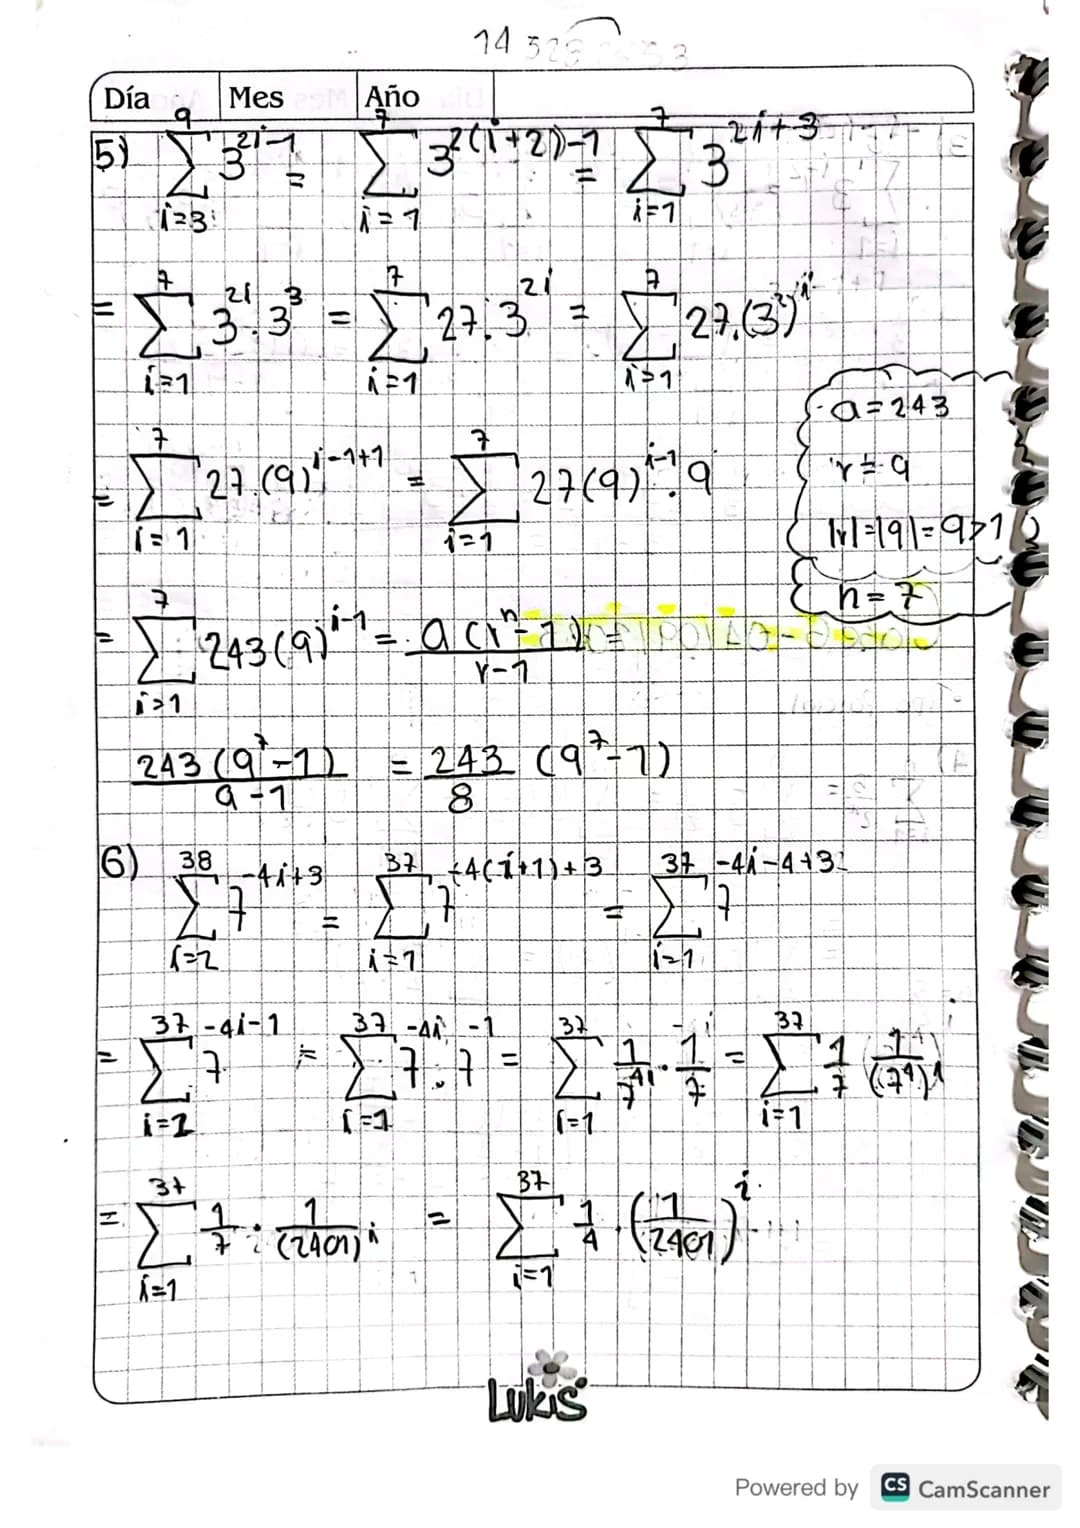 14 328
Día Mes Año
5) \sum_{i=3}^{9} 3^{2i-1} = \sum_{i=1}^{7} 3^{2(i+2)-1} = \sum_{i=1}^{7} 3^{2i+3}
= \sum_{i=1}^{7} 3^{2i} \cdot 3^{3} = \sum_{i=1}^{7} 27 \cdot 3^{2i} = \sum_{i=1}^{7} 27 \cdot (3^{2})^{i}
a = 243
r = 9
|r| = |9| = 9 > 1
n = 7
= \sum_{i=1}^{7} 27 \cdot (9)^{i-1+1} = \sum_{i=1}^{7} 27 (9)^{i-1} \cdot 9
= \sum_{i=1}^{7} 243 (9)^{i-1} = \frac{a(r^{n}-1)}{r-1} =
\frac{243(9^{7}-1)}{9-1} = \frac{243}{8} (9^{7}-1)
6) \sum_{i=2}^{38} 7^{-4i+3} = \sum_{i=1}^{37} 7^{-4(i+1)+3} = \sum_{i=1}^{37} 7^{-4i-4+3}
= \sum_{i=1}^{37} 7^{-4i-1} = \sum_{i=1}^{37} 7^{-4i} \cdot 7^{-1} = \sum_{i=1}^{37} \frac{1}{7^{4i}} \cdot \frac{1}{7} = \sum_{i=1}^{37} \frac{1}{7} \frac{1}{(7^{4})^{i}}
= \sum_{i=1}^{37} \frac{1}{7} \cdot \frac{1}{(2401)^{i}} = \sum_{i=1}^{37} \frac{1}{4} \cdot \left(\frac{1}{2401}\right)^{i}
Lukis
Powered by CS CamScanner